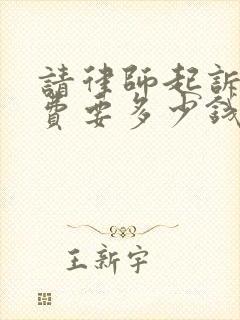 請律師起訴
費要多少錢
王新宇